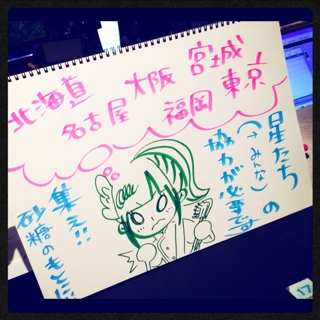 北海道 大阪 宮城
名古屋 福岡 東京
星たち
(→みんな)の
協力が必要です
集え!!
砂糖のもとに